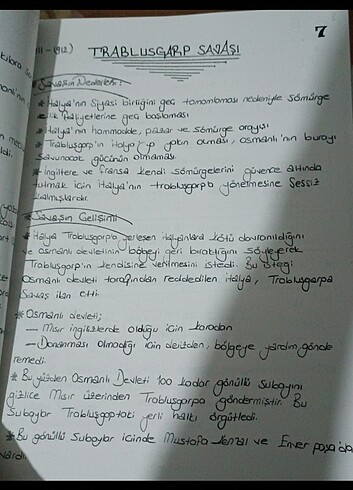 7
11-1912) TRABLUSGARP SAVAŞI
Savaşın Nedenleri:
* İtalya'nın Siyasi birliğini geç tamamlaması nedeniyle sömürge
cilik faliyetlerine geç başlaması
* İtalya'nın hammadde, pazar ve sömürge arayışı
* Trablusgarp'ın italya'ya yakın olması, osmanlı'nın burayı
savunacak gücünün olmaması
* İngiltere ve fransa kendi sömürgelerini güvence altında
tutmak için italya'nın trablusgarp'a yönelmesine Sessiz
kalmışlardır.
Savaşın Gelişimi
* İtalya Trablusgarp'a yerleşen italyanlara kötü davranıldığını
ve osmanlı devletinin bölgeyi geri bıraktığını söyleyerek
Trablusgarp'ın kendisine verilmesini istedi. Bu isteği
Osmanlı devleti tarafından reddedilen italya, Trablusgarpa
Savaş ilan etti.
* Osmanlı devleti;
— Mısır ingilizlerde olduğu için karadan
— Donanması olmadığı için denizden, bölgeye yardım gönde
remedi.
* Bu yüzden Osmanlı Devleti 100 kadar gönüllü Subayını
gizlice Mısır üzerinden Trablusgarpa göndermiştir. Bu
Subaylar Trablusgaptaki yerli halkı örgütledi.
* Bu gönüllü Subaylar içinde Mustafa kemal ve Enver paşa'da
vardı.